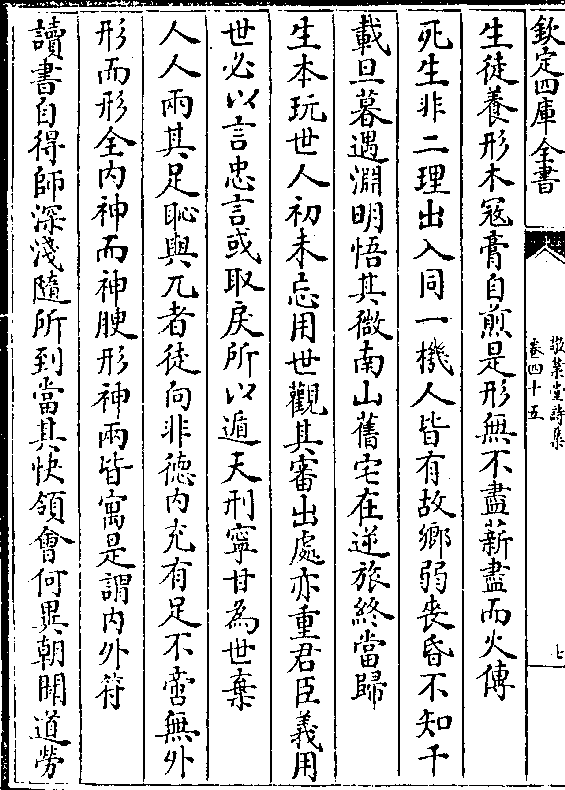 欽定四庫全書
敬業堂詩集
卷四十五
七
生徒養形木寇膏自煎是形無不盡薪盡而火傳
死生非二理出入同一機人皆有故鄉弱喪昏不知千
載旦暮遇淵明悟其微南山舊宅在逆旅終當歸
生本玩世人初未忘用世觀其審出處亦重君臣義用
世必以言忠言或取戾所以遁天刑寧甘為世棄
人人兩其足恥與兀者徒向非徳内充有足不啻無外
形而形全内神而神腴形神兩皆寓是謂内外符
讀書自得師深淺隨所到當其快領會何異朝聞道勞